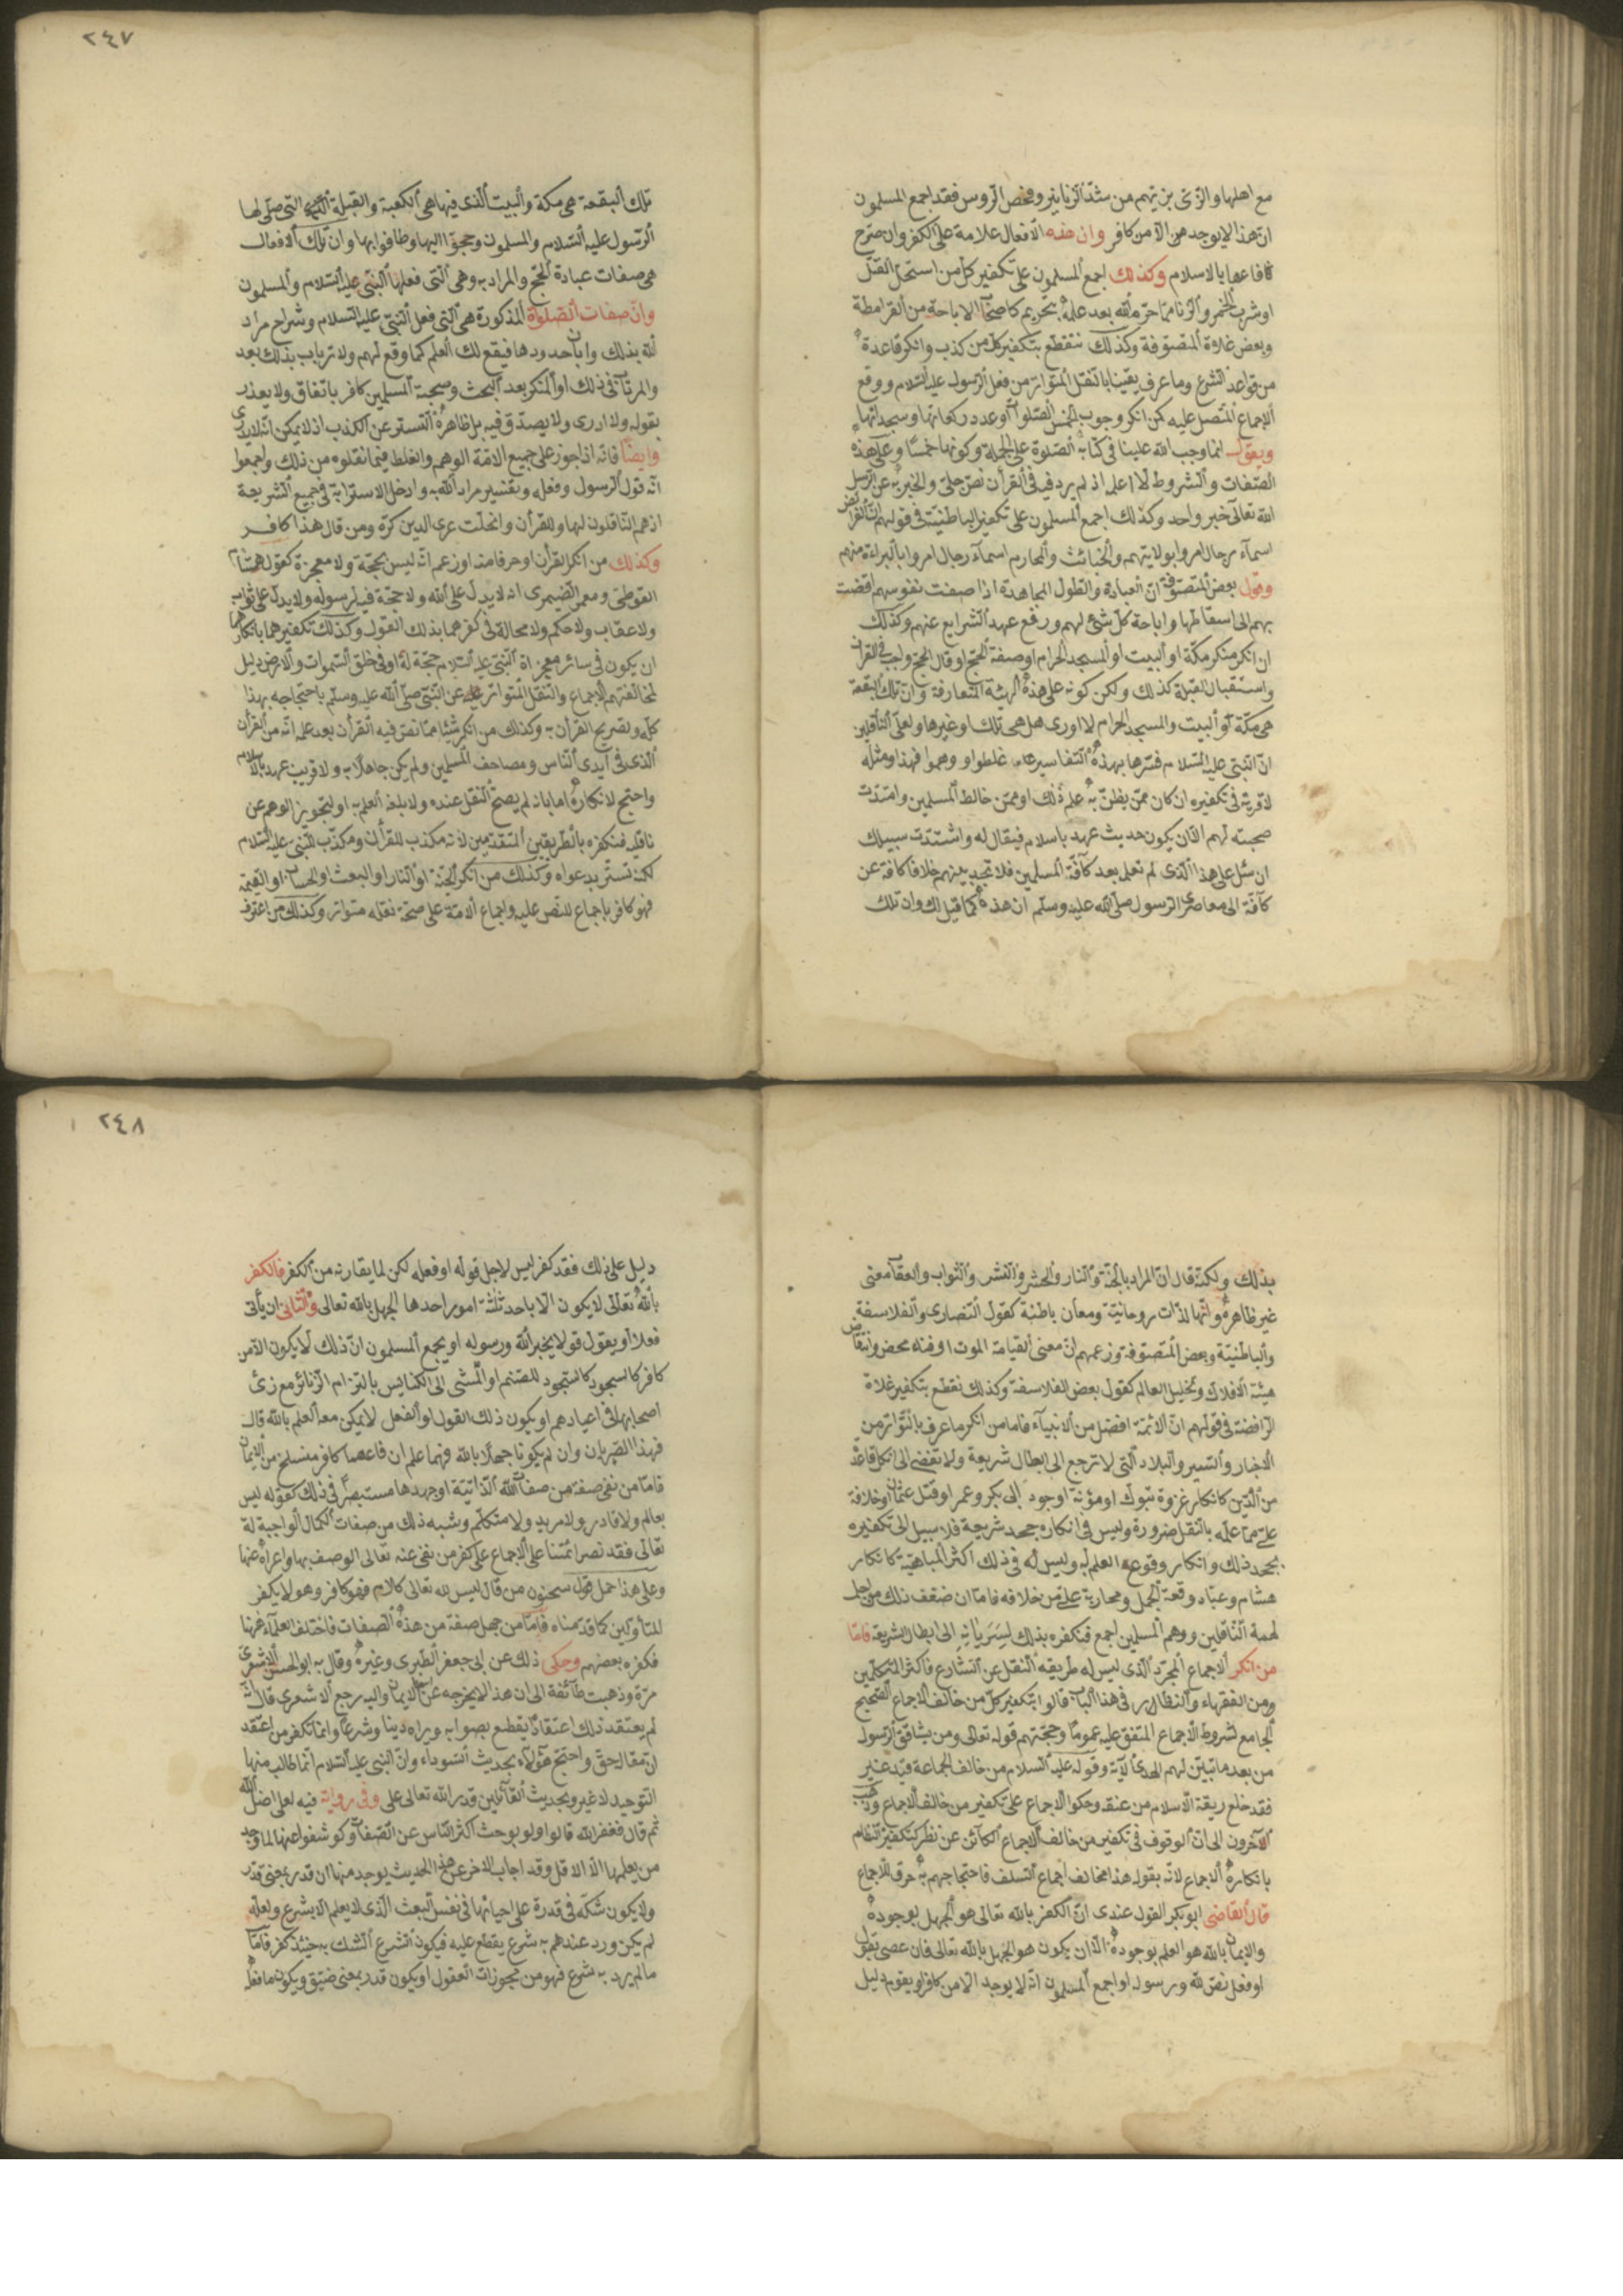 مع اهلها والزّى بزيّهم من شدّ الزنانير وفحص الرّوس فقد اجمع المسلمون
انّ هذا لا يوجد من الّا من كافر وان هذه الافعال علامة على الكفر وان صرّح
فاعلها بالاسلام وكذلك اجمع المسلمون على تكفير كلّ من استحلّ القتل
او شرب الخمر والزنا ممّا حرّم الله بعد علمه بتحريمه كاصحاب الاباحة من القرامطة
وبعض غلاة المتصوّفة وكذلك نقطع بتكفير كلّ من كذب وانكر قاعدة
من قواعد الشرع وما عرف يقينا بالنقل المتواتر من فعل الرّسول عليه السّلام ووقع
الاجماع المتّصل عليه كمن انكر وجوب الخمس الصّلوات او عدد ركعاتها وسجداتها
ويقول انما اوجب الله علينا فى كتابه الصّلوة على الجملة وكونها خمسًا وعلى هذه
الصّفات والشروط لا اعلمه اذ لم يرد فيه فى القرأن نصّ جلىّ والخبر به عن الرّسول صلى
الله تعالى خبر واحد وكذلك اجمع المسلمون على تكفير الباطنيّة فى قولهم انّ الفرائض
اسمآء رجال امروا بولايتهم والخبائث والمحارم اسمآء رجال امروا بالبراءة منهم
وقول بعض المتصوّفة انّ العبادة والطول المجاهدة اذا صفت نفوسهم افضت
بهم الى اسقاطها واباحة كلّ شئ لهم ورفع عهد الشرايع عنهم وكذلك
ان انكر منكر مكّة او البيت او المسجد الحرام او صفة الحجّ او قال الحجّ واجب فى القرأن
واستقبال القبلة كذلك ولكن كونه على هذه الهيئة المتعارفة وانّ تلك البقعة
هى مكّة او البيت والمسجد الحرام لا ادرى هل هى تلك او غيرها ولعلّ النّاقلين
انّ النّبىّ عليه السّلام فسّرها بهذه التفاسير غلطوا ووهموا فهذا ومثله
لا مرية فى تكفيره ان كان ممّن يظنّ به علم ذلك او ممّن خالط المسلمين وامتدّت
صحبته لهم الّا ان يكون حديث عهد باسلام فيقال له سبيلك
ان تسئل على هذا الّذى لم تعلم بعد كآفّة المسلمين فلا تجد بينهم خلافا كافة عن
كآفّة الى معاصرى الرّسول صلّى الله عليه وسلّم ان هذه كما قيل لك وان تلك
٢٤٧
تلك البقعة هى مكّة والبيت الّذى فيها هى الكعبة والقبلة الّتى صلّى لها
الرّسول عليه السّلام والمسلمون وحجّوا اليها وطافوا بها وان تلك الافعال
هى صفات عبادة الحجّ والمراد به وهى الّتى فعلها النّبىّ عليه السّلام والمسلمون
وانّ صفات الصّلوة المذكورة هى الّتى فعل النّبىّ عليه السّلام وشرح مراد
الله بذلك وابان حدودها فيقع لك العلم كما وقع لهم ولا ترتاب بذلك بعد
والمرتاب فى ذلك او المنكر بعد البحث وصحبة المسلمين كافر باتفاق ولا يعذر
بقوله ولا ادرى ولا يصدّق فيه بل ظاهره التستر عن الكذب اذ لا يمكن انّه لا يدرى
وايضًا فانّه اذا جوز على جميع الامّة الوهم والغلط فيما نقلوه من ذلك واجمعوا
انّه قول الرسول وفعله وتفسير مراد الله به وادخل الاسترابة فى جميع الشّريعة
اذ هم النّاقلون لها وللقرأن وانحلّت عرى الدين كرّة ومن قال هذا كافر
وكذلك من انكر القرأن او حرفا منه او زعم انّه ليس بحجّة ولا معجزة كقول هشام
الفوطى ومعمر الضيمرى انه لا يدلّ على الله ولا حجّة فيه لرسوله ولا يدلّ على ثواب
ولا عقاب ولا حكم ولا محالة فى كفرهما بذلك القول وكذلك تكفيرهما بانكارهما
ان يكون فى سائر معجزاة النّبىّ عليه السّلام حجّة له او فى خلق السّموات والارض دليل
لمخالفتهم الاجماع والنّقل المتواتر عن النّبىّ صلّى الله عليه وسلّم باحتجاجه بهذا
كلّه وتصريح القرأن به وكذلك من انكر شيئا ممّا نصّ فيه القرأن بعد علمه انّه من القرأن
الّذى فى ايدى النّاس ومصاحف المسلمين ولم يكن جاهلا به ولا قريب عهد بالاسلام
واحتج لانكاره امّا بانه لم يصحّ النّقل عنده ولا بلغه العلم به او لتجويز الوهم عن
ناقليه فنكفره بالطّريقين المتقدّمين لانّه مكذب للقرأن ومكذّب للنّبىّ عليه السّلام
لكنه تستّر بدعواه وكذلك من انكر الجنّة او النّار او البعث او الحساب او القيمة
فهو كافر باجماع للنّص عليه واجماع الامّة على صحّة نقله متواتر وكذلك من اعترف
بذلك ولكنّه قال انّ المراد بالجنّة والنار والحشر والنشر والثواب والعقاب معنى
غير ظاهره وانّها لذّات روحانيّة ومعان باطنة كقول النّصارى والفلاسفة
والباطنيّة وبعض المتصوّفة وزعمهم انّ معنى القيامة الموت او فناء محض وانتقاض
هيئة الافلاك وتحليل العالم كقول بعض الفلاسفة وكذلك نقطع بتكفير غلاة
الرافضة فى قولهم انّ الائمّة افضل من الانبيآء فاما من انكر ما عرف بالتّواتر من
الاخبار والسّير والبلاد الّتى لا ترجع الى ابطال شريعة ولا تفضى الى انكار قاعدة
من الدّين كانكار غزوة تبوك او مؤتة او وجود ابى بكر وعمر او قتل عثمان او خلافة
علىّ ممّا علم بالنقل ضرورة وليس فى انكاره جحد شريعة فلا سبيل الى تكفيره
بجحد ذلك وانكار وقوع العلم له وليس له فى ذلك اكثر المباهتة كانكار
هشام وعبّاد وقعة الجمل ومحاربة علىّ من خلافه فامّا ان ضعّف ذلك من اجل
تهمة النّاقلين ووهم المسلمين اجمع فنكفره بذلك لسريانه الى ابطال الشريعة فامّا
من انكر الاجماع المجرّد الّذى ليس له طريقه النّقل عن الشّارع فاكثر المتكلّمين
ومن الفقهاء والنظار فى هذا الباب قالوا بتكفير كلّ من خالف الاجماع الصّحيح
الجامع لشروط الاجماع المتفق عليه عمومًا وحجّتهم قوله تعالى ومن يشاقق الرّسول
من بعد ما تبيّن لهم الهدى الآية وقوله عليه السّلام من خالف الجماعة قيد شبر
فقد خلع ربقة الاسلام من عنقه وحكوا الاجماع على تكفير من خالف الاجماع وذهب
الآخرون الى انّ الوقوف فى تكفير من خالف الاجماع الكآئن عن نظر كتكفير النّظام
بانكاره الاجماع لانّه بقوله هذا مخالف اجماع السّلف فاحتجاجهم به خرق للاجماع
قال القاضى ابو بكر القول عندى انّ الكفر بالله تعالى هو الجهل بوجوده
والايمان بالله هو العلم بوجوده الّا ان يكون هو الجهل بالله تعالى فان عصى بقول
او فعل نصّ الله ورسوله او اجمع المسلمون انّه لا يوجد الّا من كافر او يقوم دليل
٢٤٨
دليل على ذلك فقد كفر ليس لاجل قوله او فعله لكن لما يقارنه من الكفر فالكفر
بالله تعالى لا يكون الّا باحد ثلثة امور احدها الجهل بالله تعالى والثّانى ان يأتى
فعلا او يقول قولا يخبر الله ورسوله او يجمع المسلمون انّ ذلك لا يكون الّا من
كافر كالسجود كالسّجود للصّنم او المشى الى الكنايس بالتزام الزنانر مع زىّ
اصحابها فى اعيادهم او يكون ذلك القول او الفعل لا يمكن معه العلم بالله قال
فهذا الضربان وان لم يكونا جهلا بالله فهما علم ان فاعلهما كافر منسلخ من الايمان
فامّا من نفى صفة من صفات الله الذّاتيّة او جحدها مستبصرًا فى ذلك كقوله ليس
بعالم ولا قادر ولا مريد ولا متكلّم وشبه ذلك من صفات الكمال الواجبة له
تعالى فقد نصّ ائمّتنا على الاجماع على كفر من نفى عنه تعالى الوصف بها واعراه عنها
وعلى هذا حمل قول سحنون من قال ليس لله تعالى كلام فهو كافر وهو لا يكفر
المتأوّلين كما قدّمناه فامّا من جهل صفة من هذه الصفات فاختلف العلمآء هٰهنا
فكفره بعضهم وحكى ذلك عن ابى جعفر الطّبرى وغيره وقال به ابو الحسن الاشعرى
مرّة وذهبت طآئفة الى ان هذا لا يخرجه عن اسم الايمان واليه رجع الاشعرى قال لانّه
لم يعتقد ذلك اعتقادًا يقطع بصوابه ويراه دينا وشرعًا وانما تكفر من اعتقد
انّ مقاله حقّ واحتجّ هؤلآء بحديث السّوداء وانّ النبى عليه السّلام انّما طالب منها
التوحيد لا غير وبحديث القآئلين قدر الله تعالى على وفى رواية فيه لعلى اضلّ الله
ثم قال فغفر الله قالوا ولو بوحث اكثر النّاس عن الصّفات وكوشفوا عنها لما وجد
من يعلمها الّا الاقل وقد اجاب الآخر عن هذا الحديث بوجوه منها ان قدر بمعنى قدّر
ولا يكون شكّه فى قدرة على احيائها فى نفس البعث الّذى لا يعلم الّا بشرع ولعلّه
لم يكن ورد عندهم به شرع يقطع عليه فيكون الشرع الشك به حينئذ كفر فامّا
ما لم يرد به شرع فهو من مجوزات العقول او يكون قدر بمعنى ضيّق ويكون ما فعله